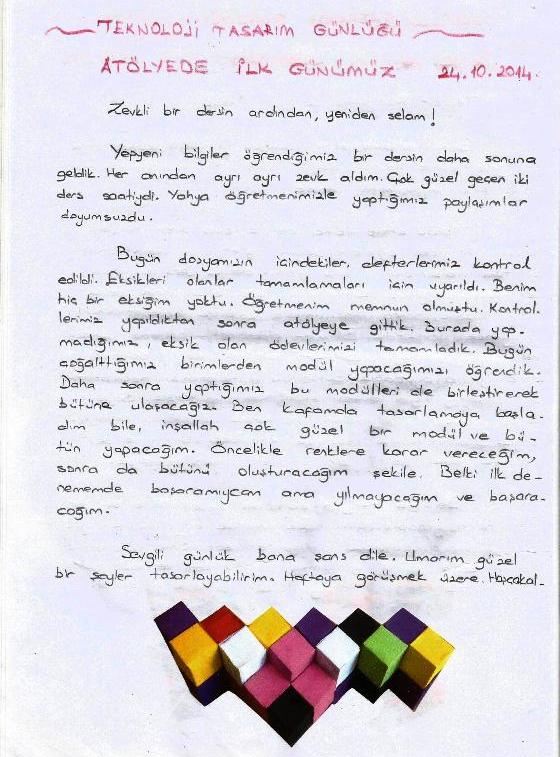 TEKNOLOJİ TASARIM GÜNLÜĞÜ
ATÖLYEDE İLK GÜNÜMÜZ 24.10.2014.
Zevkli bir dersin ardından, yeniden selam!
Yepyeni bilgiler öğrendiğimiz bir dersin daha sonuna
geldik. Her anından ayrı ayrı zevk aldım. Çok güzel geçen iki
ders saatiydi. Yahya öğretmenimizle yaptığımız paylaşımlar
doyumsuzdu.
Bugün dosyamızın içindekiler, defterlerimiz kontrol
edildi. Eksikleri olanlar tamamlamaları için uyarıldı. Benim
hiç bir eksiğim yoktu. Öğretmenim memnun olmuştu. Kontrol-
lerimiz yapıldıktan sonra atölyeye gittik. Burada yap-
madığımız, eksik olan ödevlerimizi tamamladık. Bugün
çoğalttığımız birimlerden modül yapacağımızı öğrendik.
Daha sonra yaptığımız bu modülleri de birleştirerek
bütüne ulaşacağız. Ben kafamda tasarlamaya başla-
dım bile, inşallah çok güzel bir modül ve bü-
tün yapacağım. Öncelikle renklere karar vereceğim,
sonra da bütünü oluşturacağım şekile. Belki ilk de-
nememde başaramıycam ama yılmayacağım ve başara-
cağım.
Sevgili günlük bana şans dile. Umarım güzel
bir şeyler tasarlayabilirim. Haftaya görüşmek üzere. Hoşçakal.